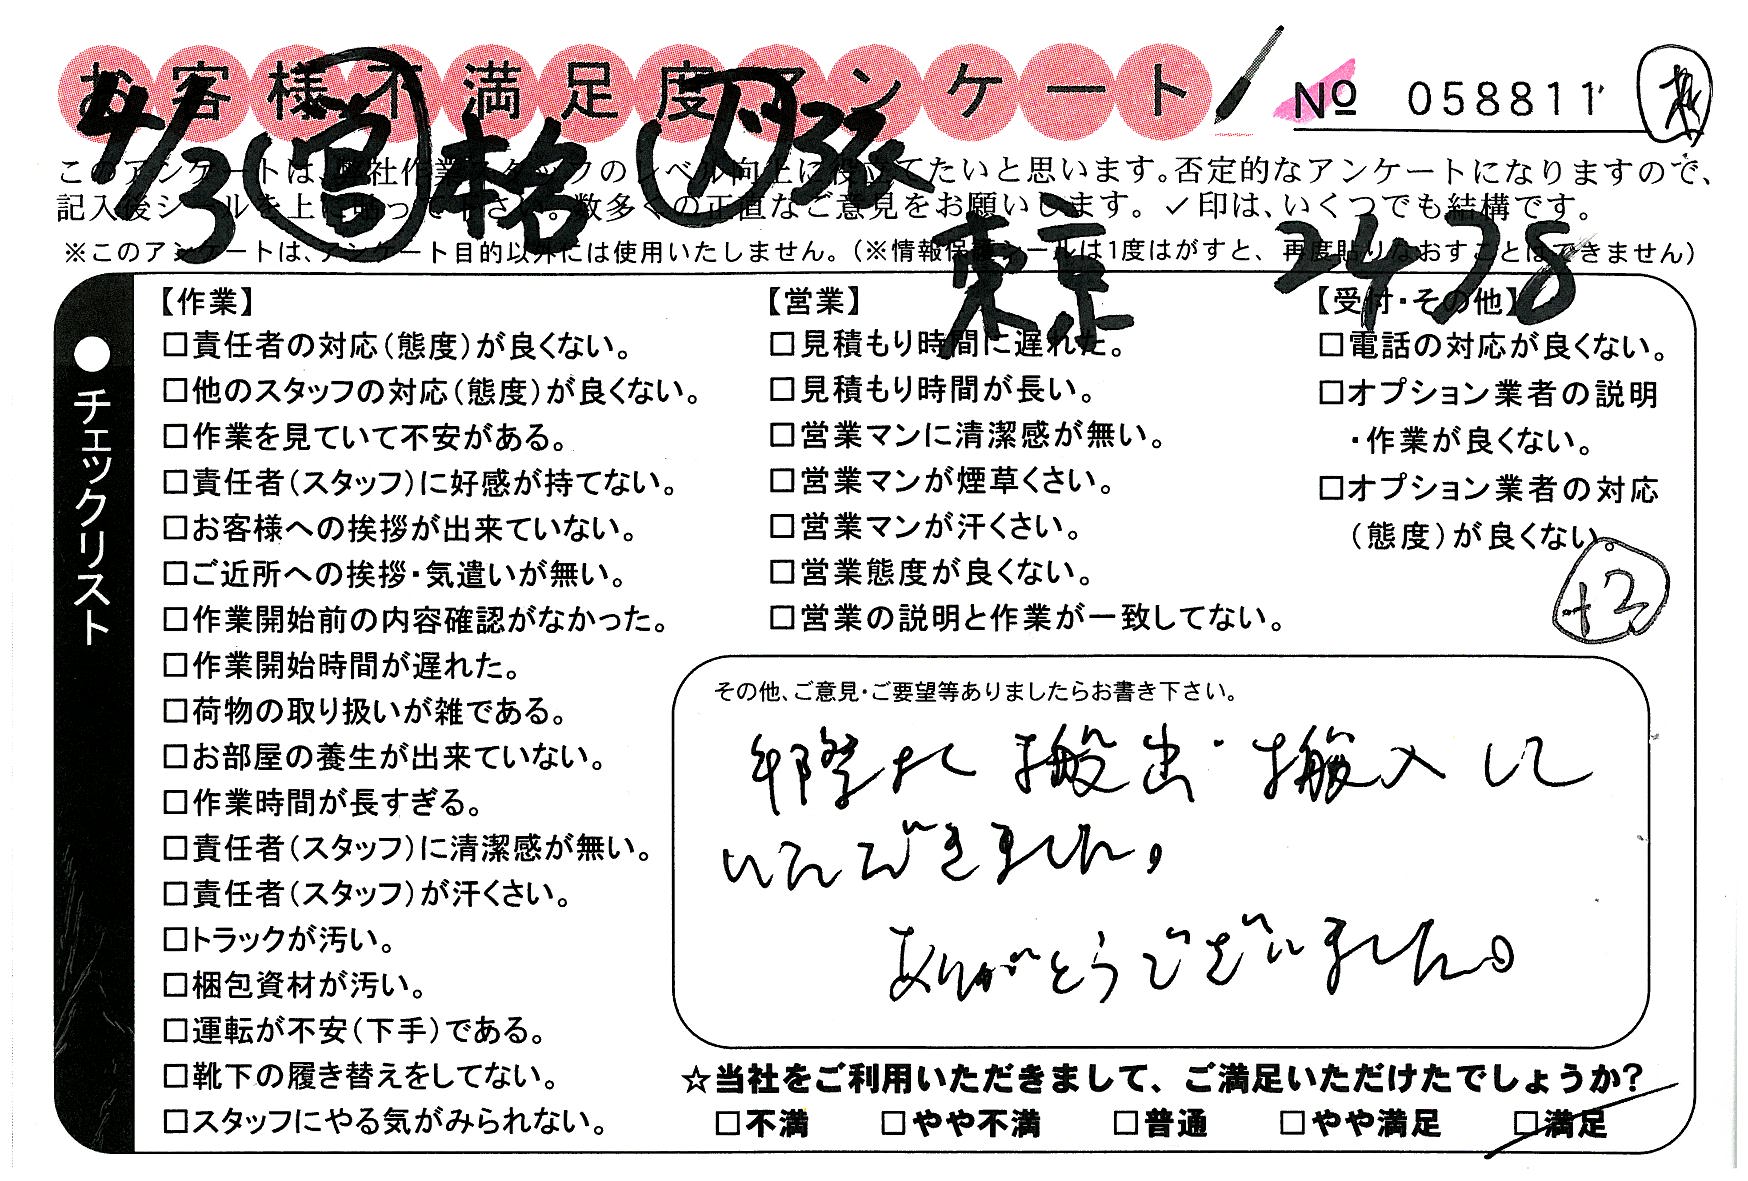 お客様不満足度アンケート
№ 058811
4/3 東京 2478
このアンケートは、弊社作業スタッフのレベル向上に役立てたいと思います。否定的なアンケートになりますので、
記入後シールを上に貼って下さい。数多くの正直なご意見をお願いします。✓印は、いくつでも結構です。
※このアンケートは、アンケート目的以外には使用いたしません。(※情報保護シールは1度はがすと、再度貼りなおすことはできません)
●チェックリスト
【作業】
□責任者の対応(態度)が良くない。
□他のスタッフの対応(態度)が良くない。
□作業を見ていて不安がある。
□責任者(スタッフ)に好感が持てない。
□お客様への挨拶が出来ていない。
□ご近所への挨拶・気遣いが無い。
□作業開始前の内容確認がなかった。
□作業開始時間が遅れた。
□荷物の取り扱いが雑である。
□お部屋の養生が出来ていない。
□作業時間が長すぎる。
□責任者(スタッフ)に清潔感が無い。
□責任者(スタッフ)が汗くさい。
□トラックが汚い。
□梱包資材が汚い。
□運転が不安(下手)である。
□靴下の履き替えをしてない。
□スタッフにやる気がみられない。
【営業】
□見積もり時間に遅れた。
□見積もり時間が長い。
□営業マンに清潔感が無い。
□営業マンが煙草くさい。
□営業マンが汗くさい。
□営業態度が良くない。
□営業の説明と作業が一致してない。
【受付・その他】
□電話の対応が良くない。
□オプション業者の説明
・作業が良くない。
□オプション業者の対応
(態度)が良くない。
+2
その他、ご意見・ご要望等ありましたらお書き下さい。
手際よく 搬出・搬入して
いただきました。
ありがとうございました。
☆当社をご利用いただきまして、ご満足いただけたでしょうか?
□不満 □やや不満 □普通 □やや満足 □満足